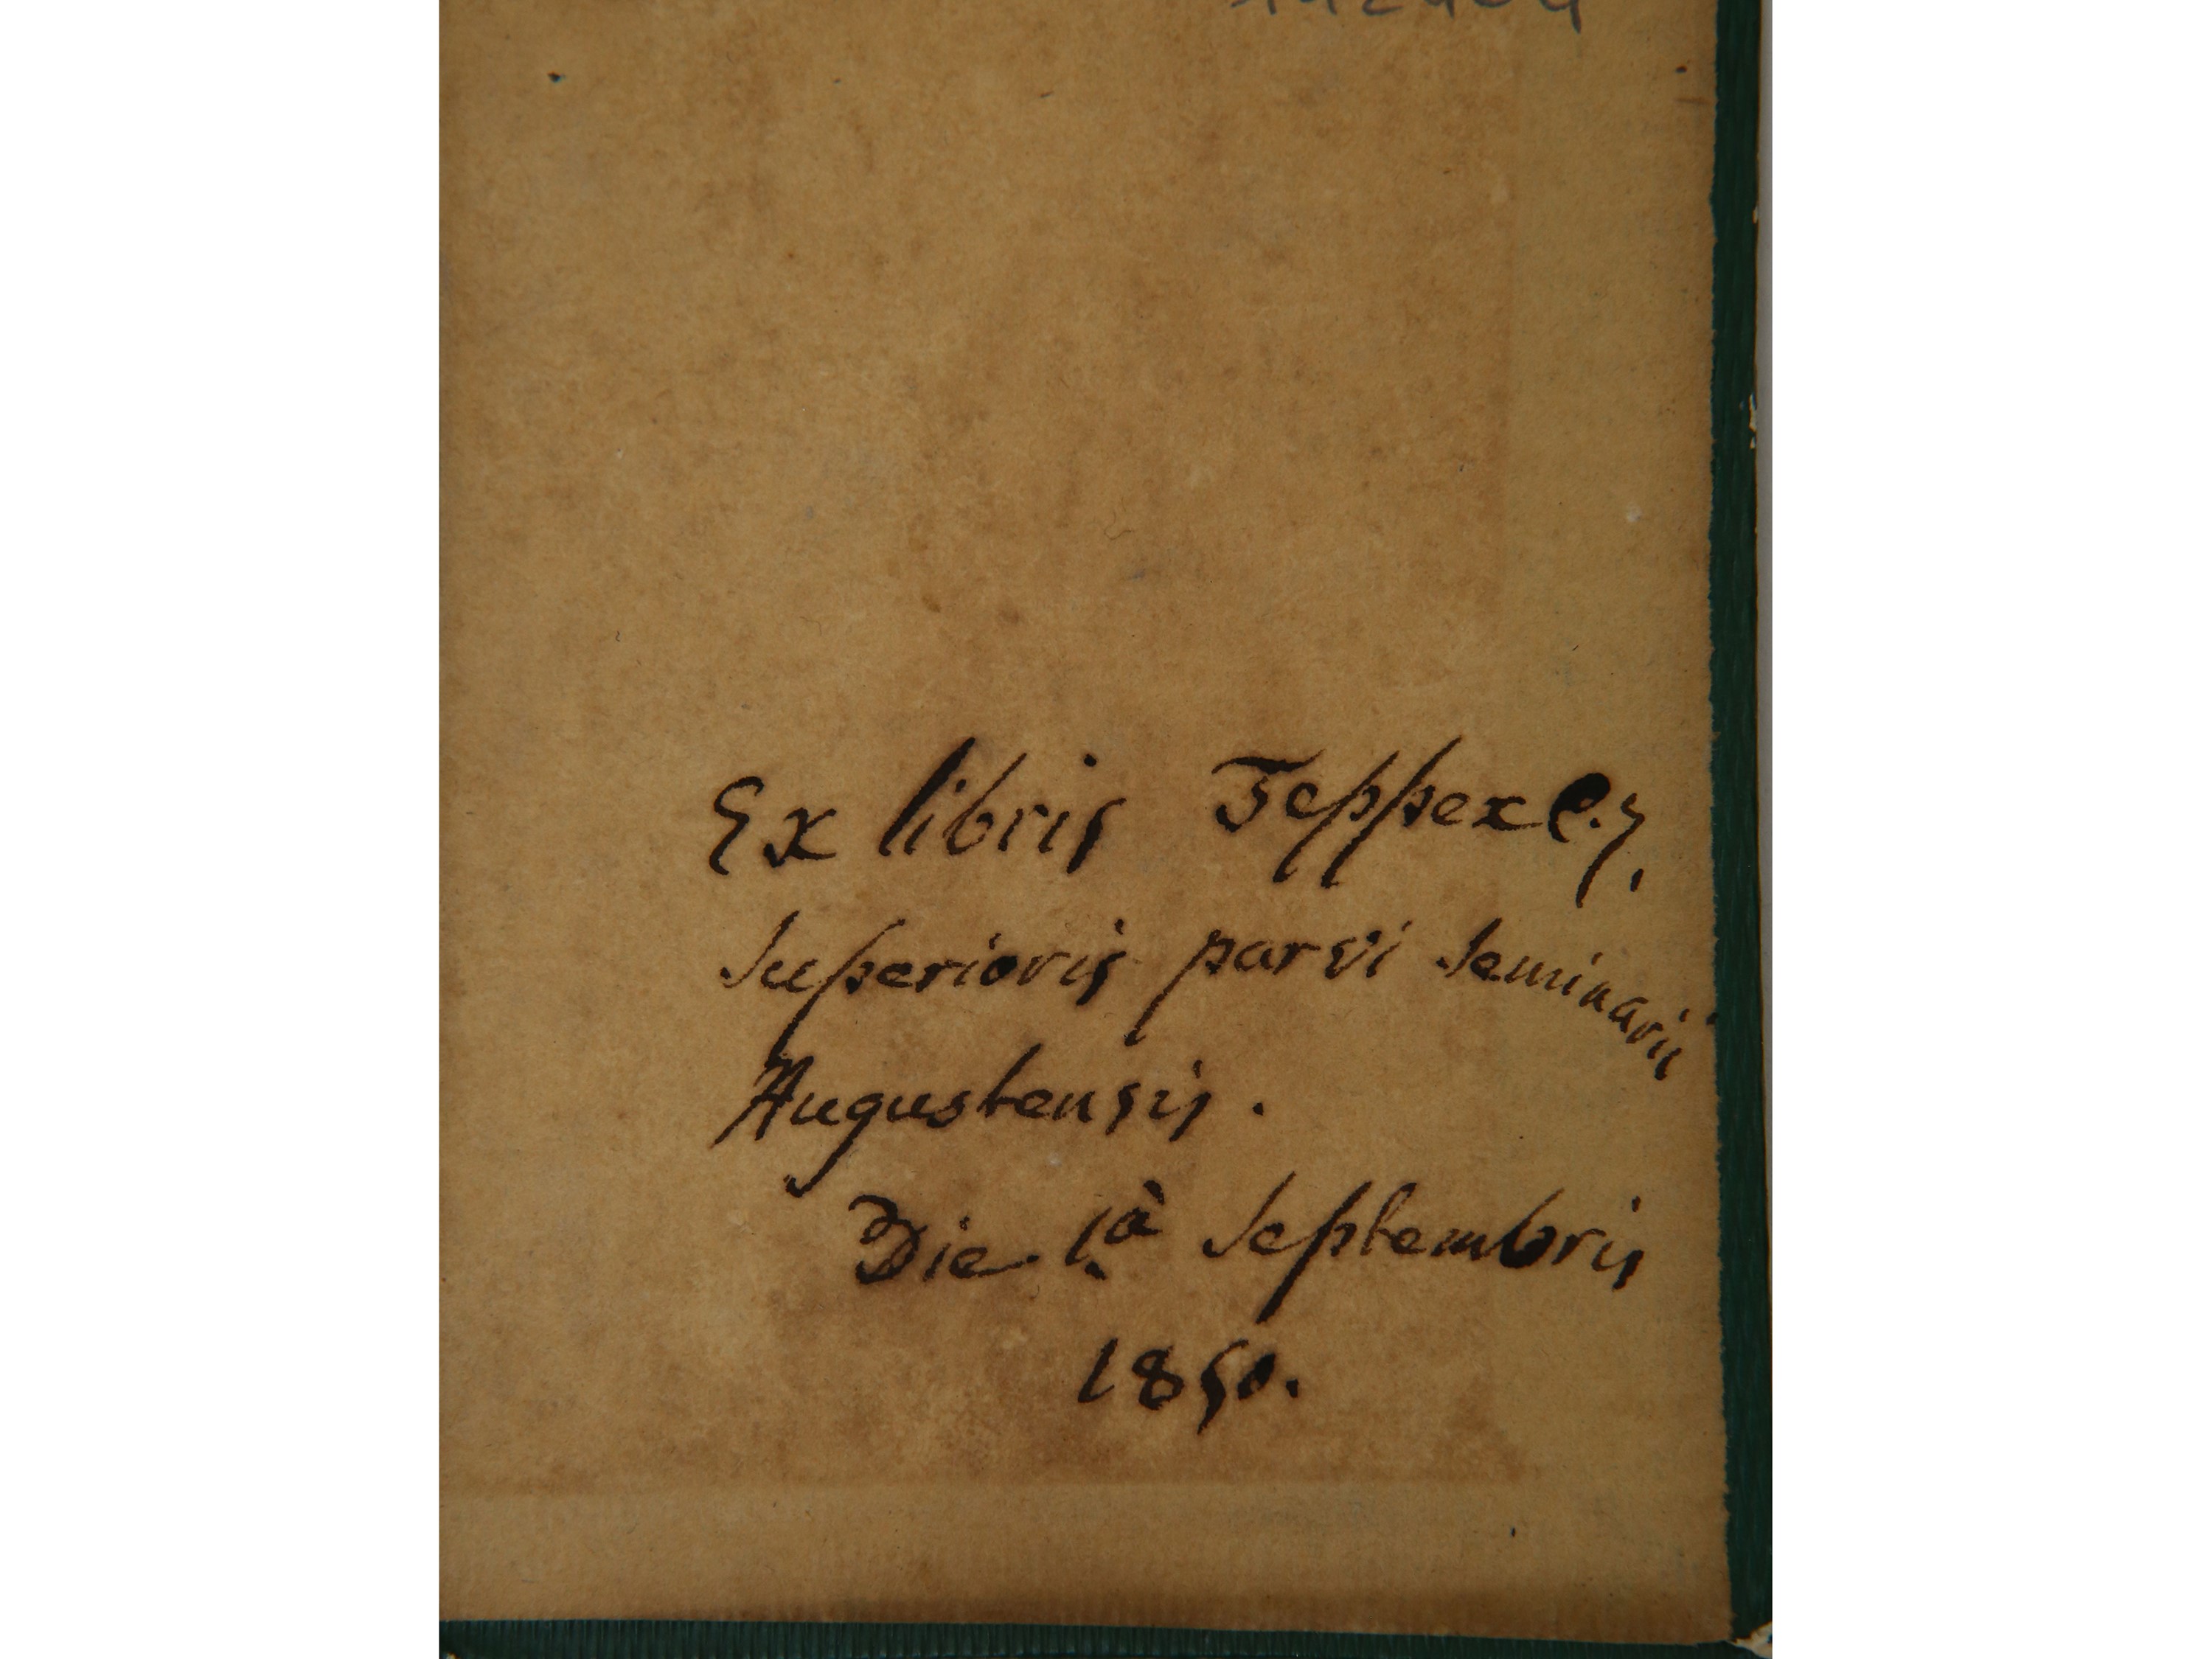 Ex libris Teppex
Superioris parvi Seminarii
Augustensis.
Die 1.à Septembris
1850.